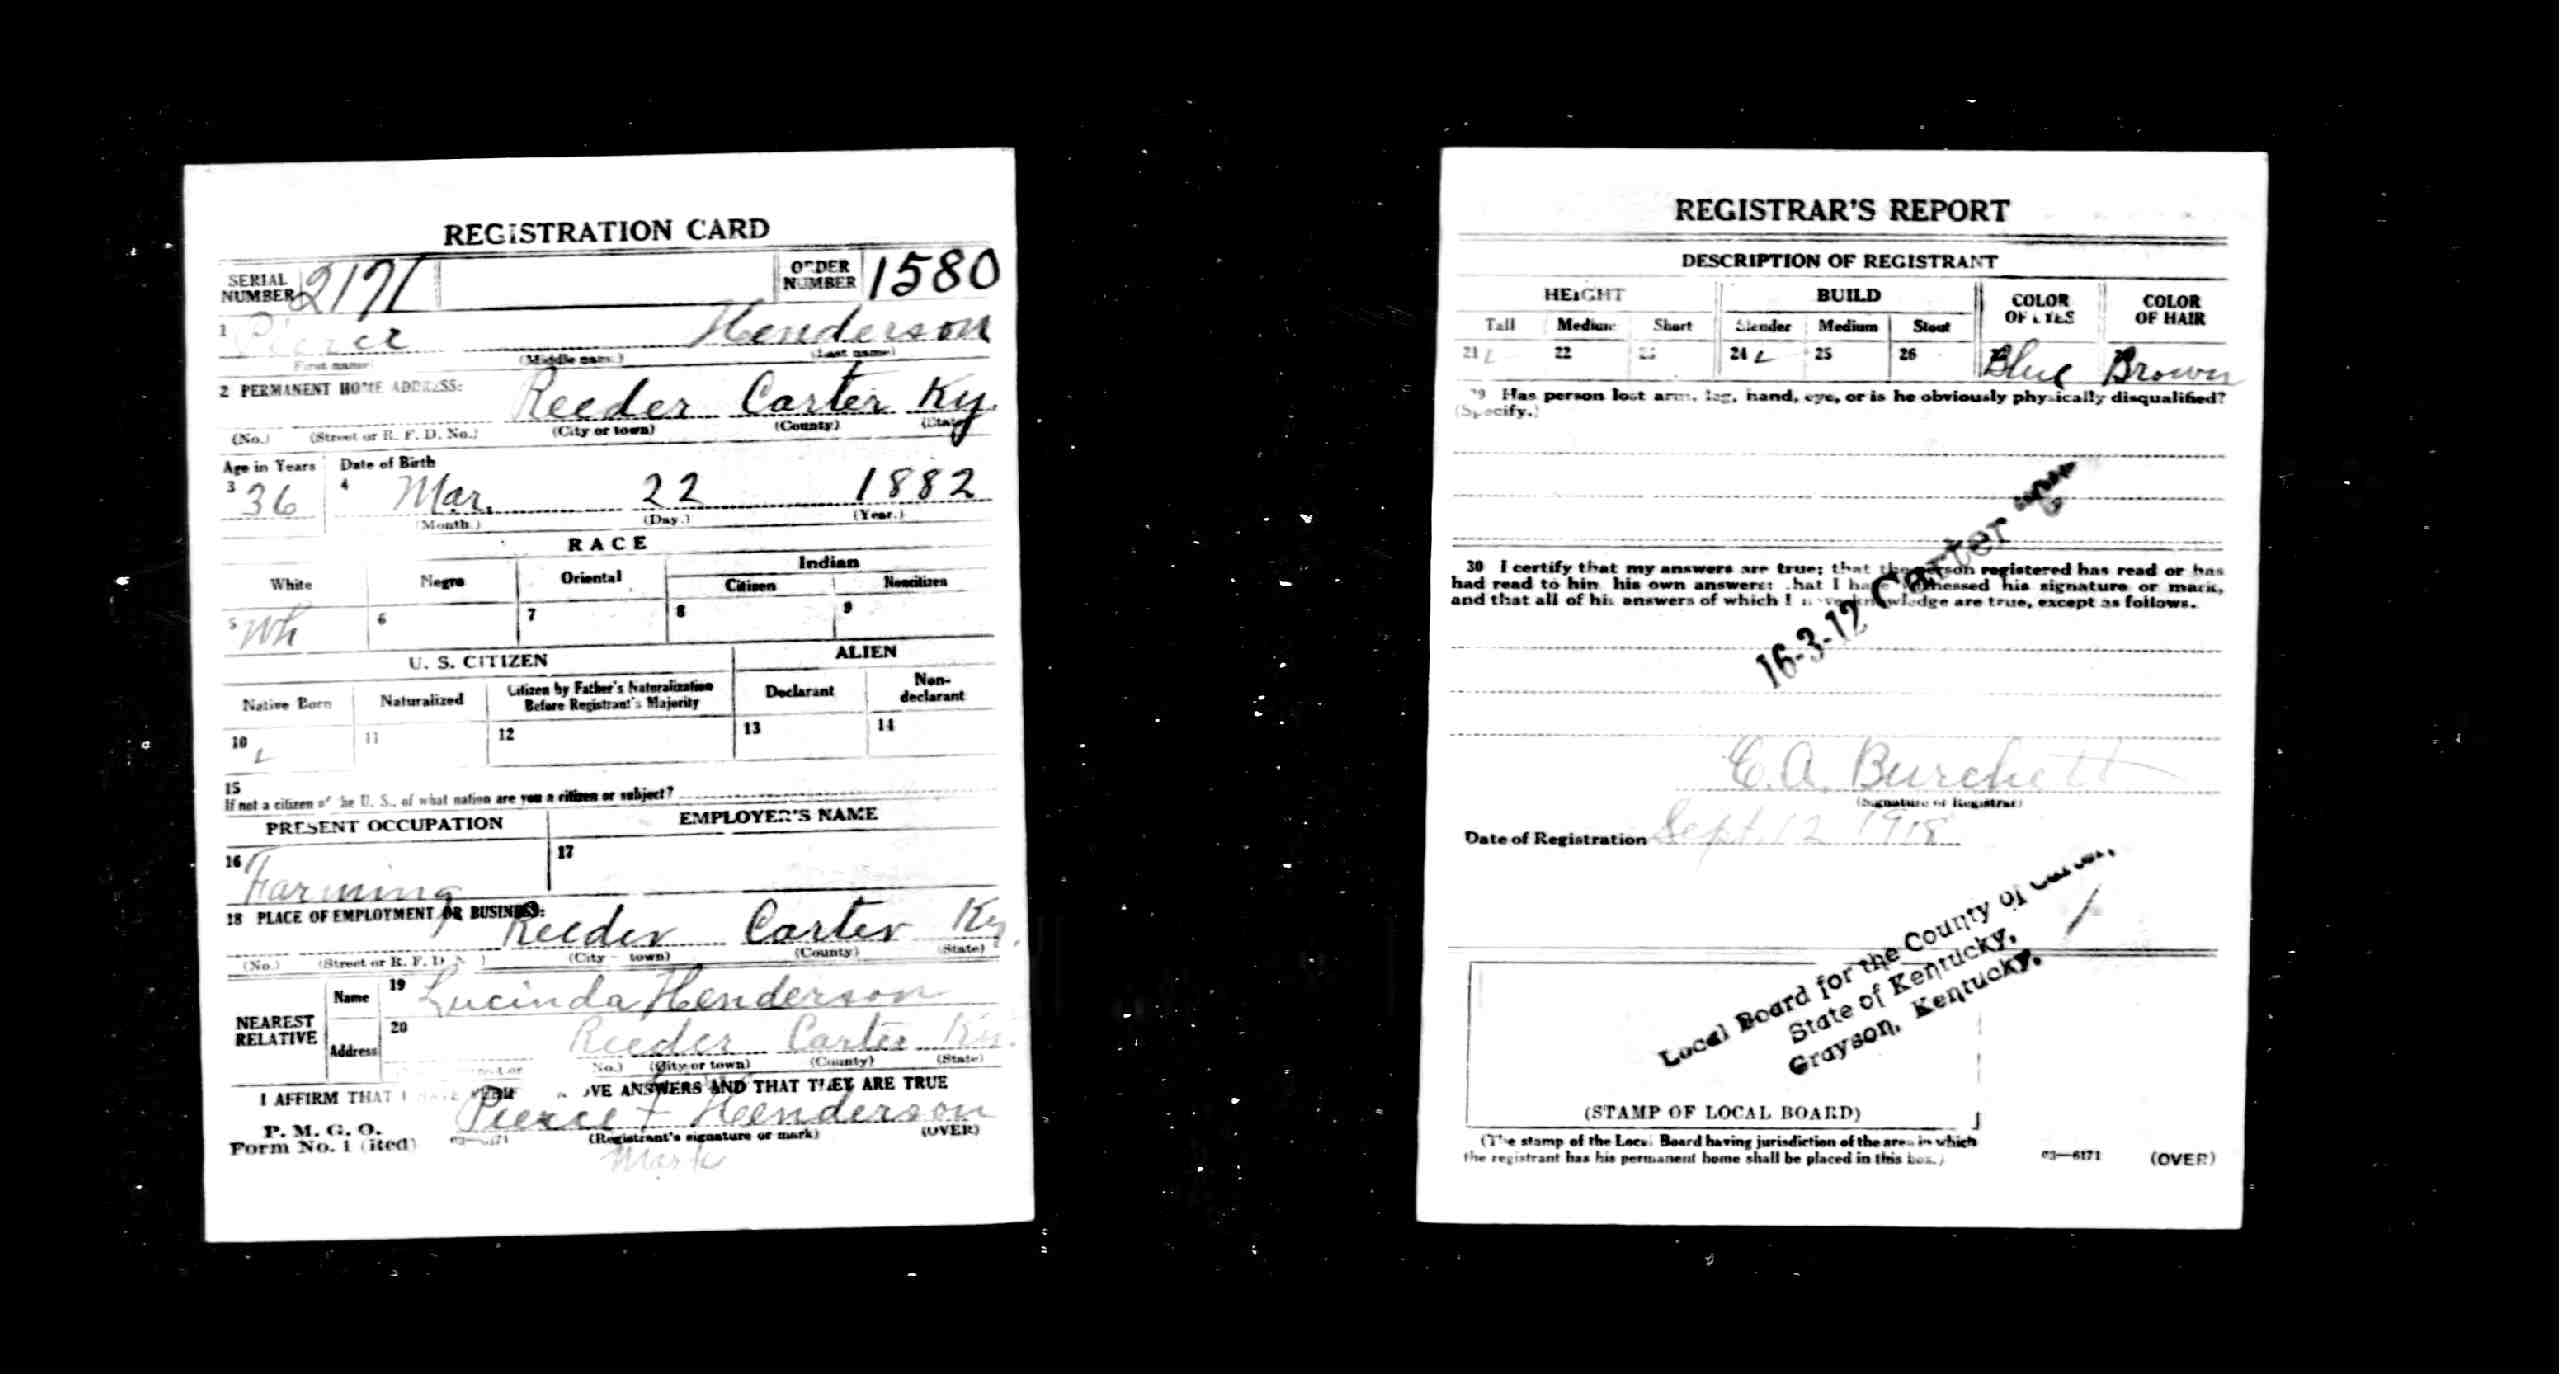 REGISTRATION CARD
SERIAL NUMBER 2171 ORDER NUMBER 1580
1 Pierce Henderson
(First name) (Middle name) (Last name)
2 PERMANENT HOME ADDRESS:
Reeder Carter Ky.
(No.) (Street or R. F. D. No.) (City or town) (County) (State)
Age in Years Date of Birth
3 36 4 Mar. 22 1882
(Month.) (Day.) (Year.)
RACE
White Negro Oriental Indian
Citizen Noncitizen
5 Wh 6 7 8 9
U. S. CITIZEN ALIEN
Native Born Naturalized Citizen by Father's Naturalization Before Registrant's Majority Declarant Non-declarant
10 11 12 13 14
15
If not a citizen of the U. S., of what nation are you a citizen or subject?
PRESENT OCCUPATION EMPLOYER'S NAME
16 Farming 17
18 PLACE OF EMPLOYMENT OR BUSINESS:
Reeder Carter Ky.
(No.) (Street or R. F. D. No.) (City or town) (County) (State)
NEAREST RELATIVE
Name 19 Lucinda Henderson
Address 20 Reeder Carter Ky.
No.) (City or town) (County) (State)
I AFFIRM THAT I HAVE ABOVE ANSWERS AND THAT THEY ARE TRUE
P. M. G. O.
Form No. 1 Pierce + Henderson
03—6171 (Registrant's signature or mark) (OVER)
Mark
REGISTRAR'S REPORT
DESCRIPTION OF REGISTRANT
HEIGHT BUILD COLOR OF EYES COLOR OF HAIR
Tall Medium Short Slender Medium Stout
21 22 23 24 25 26 Blue Brown
29 Has person lost arm, leg, hand, eye, or is he obviously physically disqualified?
(Specify.)
30 I certify that my answers are true; that the person registered has read or has
had read to him his own answers; that I have witnessed his signature or mark,
and that all of his answers of which I have knowledge are true, except as follows.
16-3-12 Carter
E. A. Burchett
(Signature of Registrar)
Date of Registration Sept. 12 1918
Local Board for the County of Carter,
State of Kentucky,
Grayson, Kentucky.
(STAMP OF LOCAL BOARD)
(The stamp of the Local Board having jurisdiction of the area in which
the registrant has his permanent home shall be placed in this box.)
03—6171 (OVER)